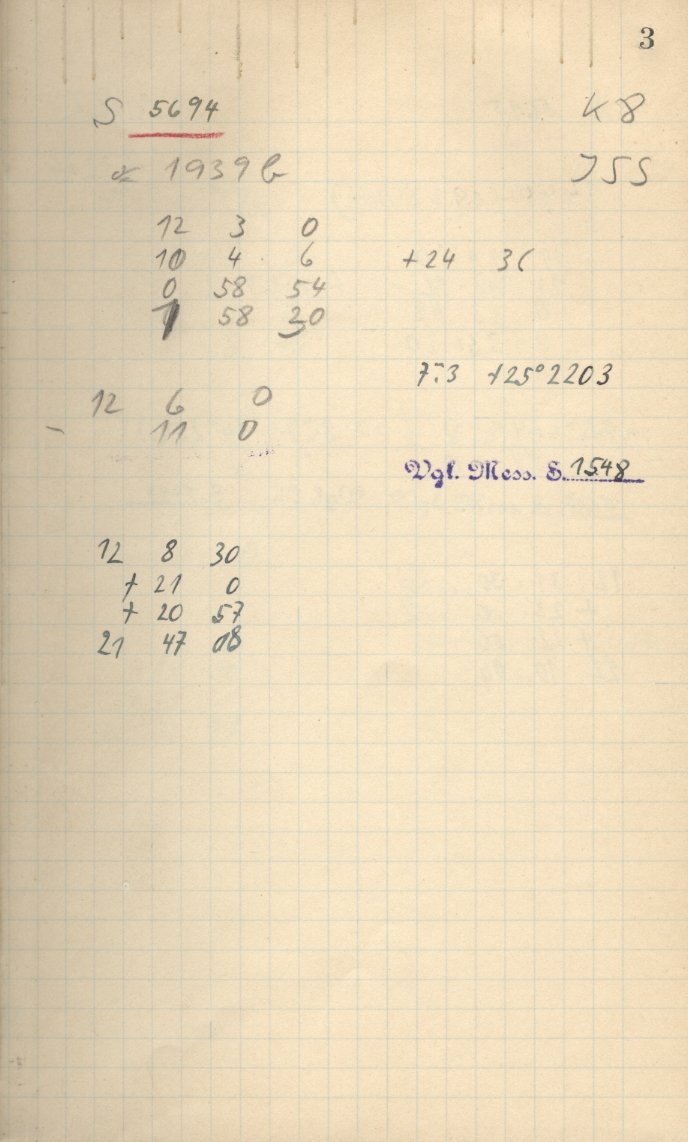 3
S 5694 K8
1939 b JSS
12 3 0
10 4 6 +24 36
0 58 54
1 58 30
7.3 +25°2203
12 6 0
- 11 0
Vgl. Mess. S. 1548
12 8 30
+ 21 0
+ 20 57
21 47 18